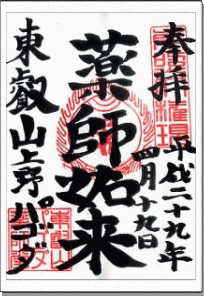 奉拝
平成二十九年
四月十九日
薬師如来
東叡山上野パゴダ